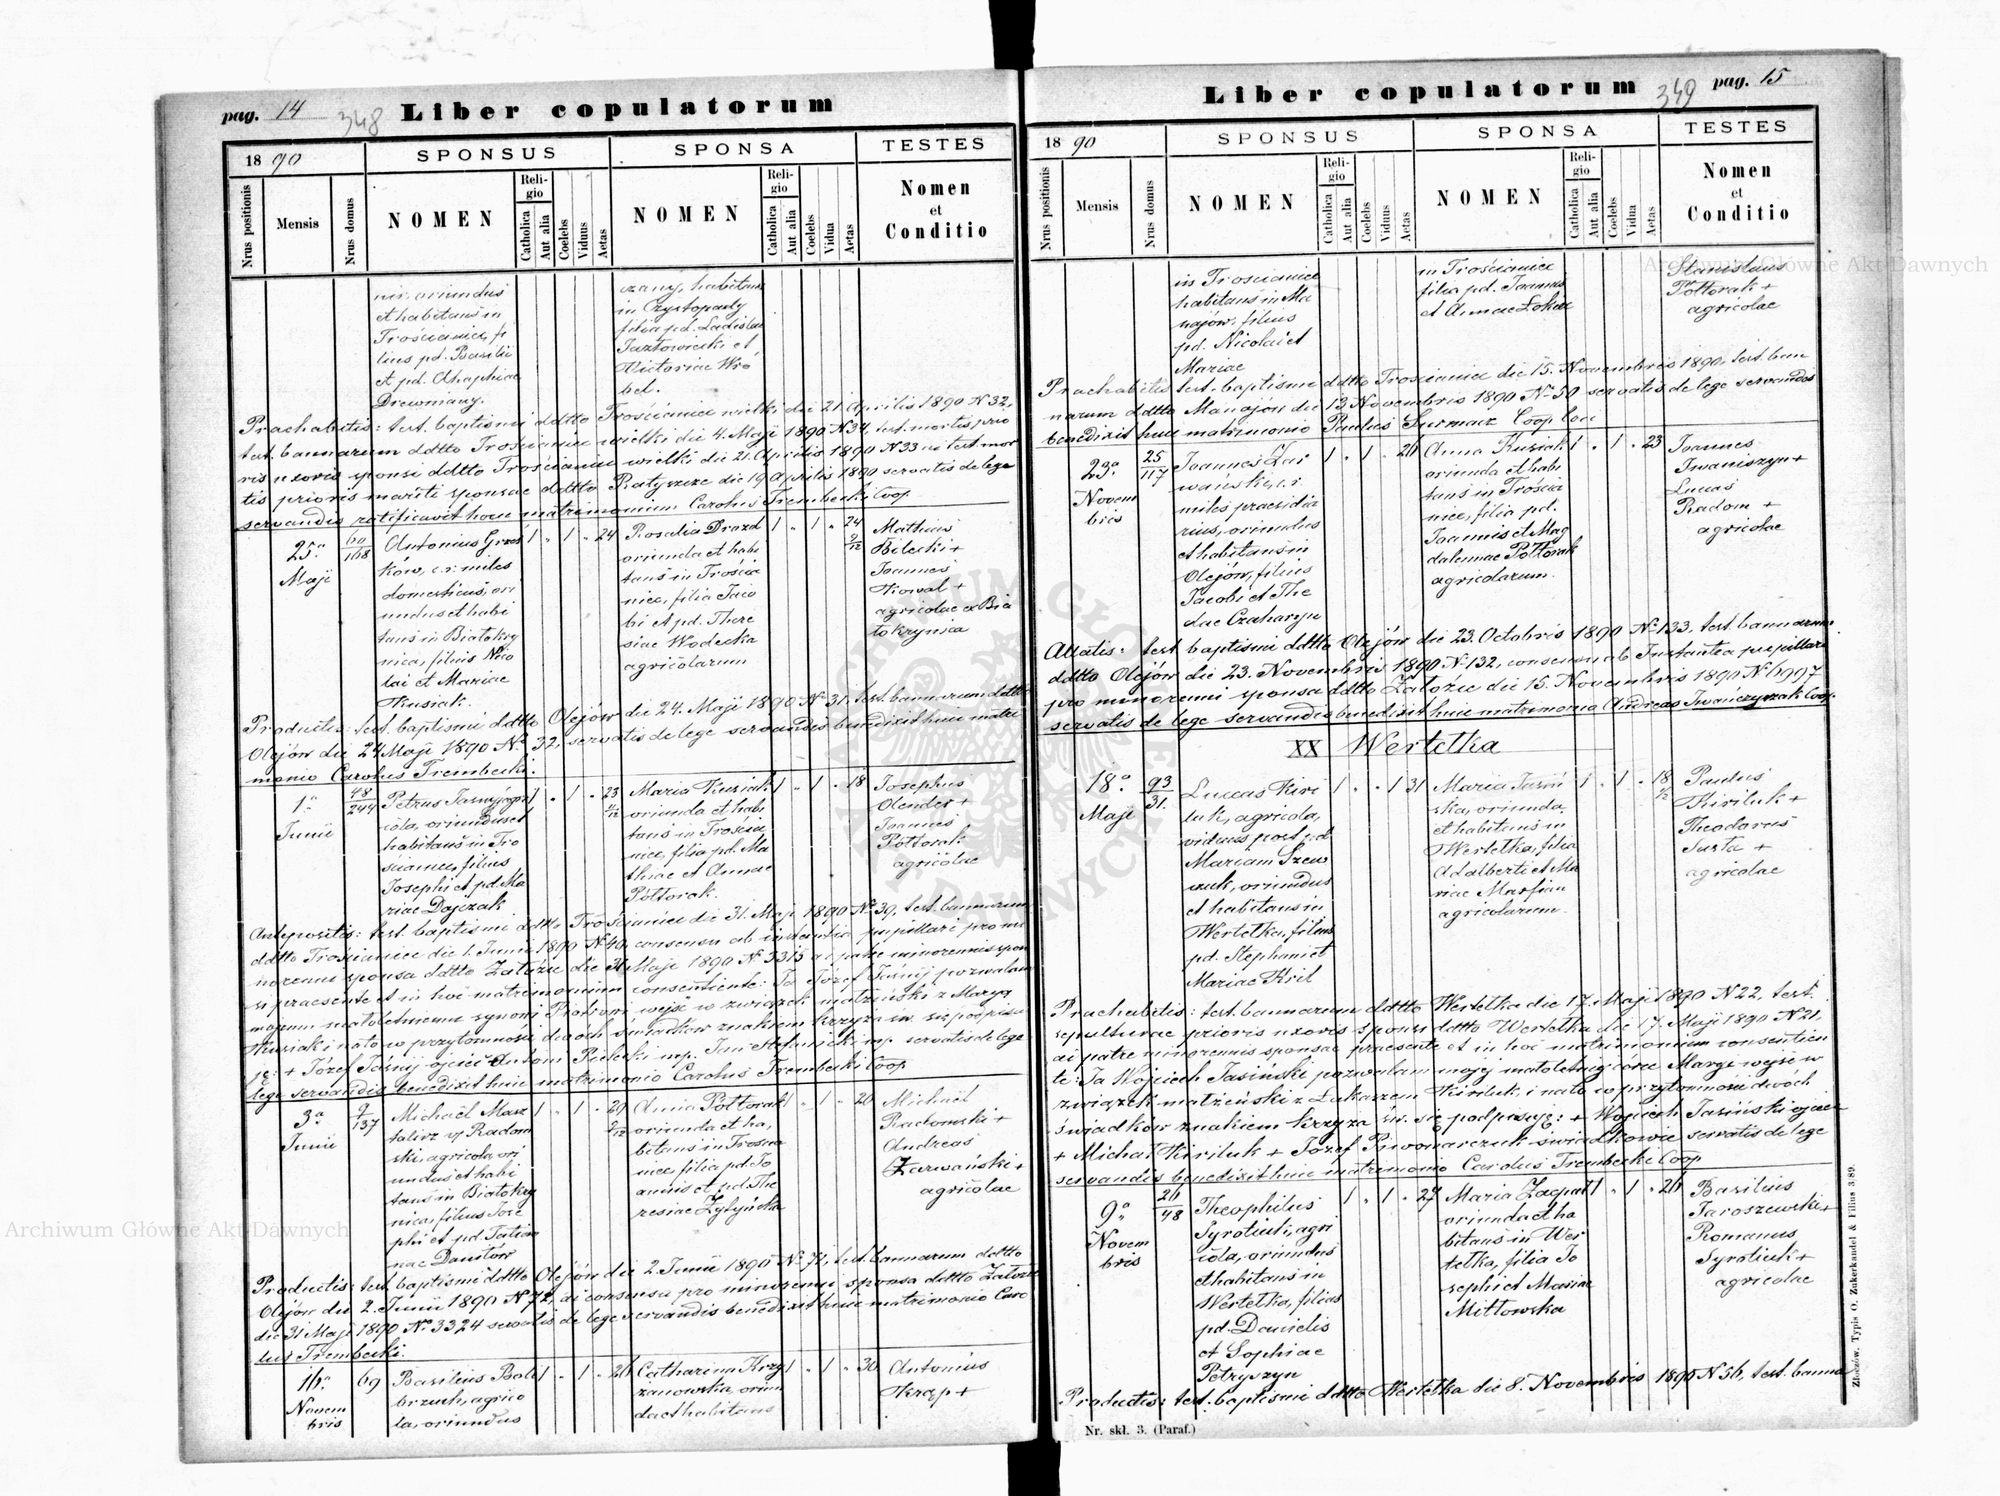 pag. 14
348
Liber copulatorum
1890
SPONSUS
SPONSA
TESTES
Nrus positionis
Mensis
Nrus domus
NOMEN
Religio
Catholica
Aut alia
Coelebs
Viduus
Aetas
NOMEN
Religio
Catholica
Aut alia
Coelebs
Vidua
Aetas
Nomen
et
Conditio
oriundus
et habitans in
Trościaniec, fi
lius pd. Basilii
et pd. Ahaphiae
Drewniany.
czany, habitans
in Czystopady
filia pd. Ladislai
Jazłowiecki et
Victoriae Wró
bel.
Praehabitis: test. baptismi ddtto Trościaniec wielki die 21. Aprilis 1890 N 32,
test. bannorum ddtto Trościaniec wielki die 4. Maji 1890 N 34, test. mortis prio
ris uxoris sponsi ddtto Trościaniec wielki die 21. Aprilis 1890 N 33 ac test. mor
tis prioris mariti sponsae ddtto Ratyszcze die 19 Aprilis 1890 servatis de lege
servandis ratificavit hocce matrimonium Carolus Trembecki Coop.
25a
Maji
60
168
Antonius Grzes
kow, c. r. miles
domesticus, ori
undus et habi
tans in Białokry
nica, filius Nico
lai et Mariae
Kusiak.
1 " 1 " 24
Rosalia Drozd
oriunda et habi
tans in Trościa
niec, filia Jaco
bi et pd. There
siae Wodecka
agricolarum
1 " 1 " 24
9/12
Mathias
Bilecki +
Joannes
Kowal +
agricolae ex Bia
łokrynica
Productis: test. baptismi ddtto Olejów die 24. Maji 1890 N 31, test. bannorum ddtto
Olejów die 24 Maji 1890 N 32, servatis de lege servandis benedixit huic matri
monio Carolus Trembecki.
1a
Junii
48
244
Petrus Jasnij agri
cola, oriundus et
habitans in Tro
ścianiec, filius
Josephi et pd. Ma
riae Dajczak
1 " 1 " 23
Maria Kusiak
oriunda et habi
tans in Trościa
niec, filia pd. Ma
thiae et Annae
Półtorak.
1 " 1 " 18
Josephus
Olender +
Joannes
Półtorak
agricolae
Antepositis: test. baptismi ddtto Trościaniec die 31. Maji 1890 N 39, test. bannorum
ddtto Trościaniec die 1. Junii 1890 N 40, consensu ab instantia pupillari pro mi
norenni sponsa ddtto Załoźce die 31 Maji 1890 N 3315 ac patre minorennis spon
si praesente et in hoc matrimonium consentiente: Ja Józef Jaśnij pozwalam
mojemu małoletniemu synowi Piotrowi wejść w związek małżeński z Maryą
Kusiak i na to w przytomności dwóch świadków znakiem krzyża św. się podpisu
ję: + Józef Jaśnij ojciec Antoni mp. Jan mp. servatis de lege
lege servandis benedixit huic matrimonio Carolus Trembecki Coop
3a
Junii
9
137
Michaël Masz
talirz v Radom
ski, agricola, ori
undus et habi
tans in Białokry
nica, filius Jose
phi et pd. Tatian
nae Dawidow
1 " 1 " 20
Anna Półtorak
oriunda et ha,
bitans in Trościa
niec, filia pd. Jo
annis et pd. The
resiae Żytyńska
1 " 1 " 20
Michaël
Radomski +
Andreas
Zarwański +
agricolae
Productis: test. baptismi ddtto Olejów die 2 Junii 1890 N 71, test. bannorum ddtto
Olejów die 2. Junii 1890 N 72, ac consensu pro minorenni sponsa ddtto Załoźce
die 31 Maji 1890 N 3324 servatis de lege servandis benedixit huic matrimonio Caro
lus Trembecki.
16a
Novem
bris
69
Basilius Bali
brzuch, agrico
la, oriundus
1 " 1 " 26
Catharina Krzy
żanowska, oriun
da et habitans
1 " 1 " 30
Antonius
Krap +
Liber copulatorum
349
pag. 15
1890
SPONSUS
SPONSA
TESTES
Nrus positionis
Mensis
Nrus domus
NOMEN
Religio
Catholica
Aut alia
Coelebs
Viduus
Aetas
NOMEN
Religio
Catholica
Aut alia
Coelebs
Vidua
Aetas
Nomen
et
Conditio
in Trościaniec
habitans in Ma
najów, filius
pd. Nicolai et
Mariae
in Trościaniec
filia pd. Joannis
et Annae Łokaz
Stanislaus
Półtorak +
agricolae
Praehabitis test. baptismi ddtto Trościaniec die 15. Novembris 1890, test. ban
norum ddtto Manajów die 13 Novembris 1890 N 50 servatis de lege servandis
benedixit huic matrimonio Paulus Surmacz Coop loci
23a
Novem
bris
25
117
Joannes Zar
wański, c. r.
miles praesidia
rius, oriundus
et habitans in
Olejów, filius
Jacobi et The
clae Czaharyn
1 " 1 " 26
Anna Kusiak
oriunda et habi
tans in Trościa
niec, filia pd.
Joannis et Mag
dalenae Półtorak
agricolarum.
1 " 1 " 23
Joannes
Iwaniszyn +
Lucas
Radom +
agricolae
Allatis: test. baptismi ddtto Olejów die 23. Octobris 1890 N 133, test. bannorum
ddtto Olejów die 23. Novembris 1890 N 132, consensu ab Instantia pupillari
pro minorenni sponsa ddtto Załoźce die 15. Novembris 1890 N 6997
servatis de lege servandis benedixit huic matrimonio Andreas Iwanczyszak Coop.
XX Wertełka
18a
Maji
93
31.
Lucas Kiri
luk, agricola,
viduus post pd
Mariam Szew
czuk, oriundus
et habitans in
Wertełka, filius
pd. Stephani et
Mariae Kril
1 " " 1 31
Maria Jasiń
ska, oriunda
et habitans in
Wertełka, filia
Adalberti et Ma
riae Marfian
agricolarum.
1 " 1 " 18
Paulus
Kiriluk +
Theodorus
Justa +
agricolae
Praehabitis: test. bannorum ddtto Wertełka die 17. Maji 1890 N 22, test.
sepulturae prioris uxoris sponsi ddtto Wertełka die 17. Maji 1890 N 21,
ac patre minorennis sponsae praesente et in hoc matrimonium consentien
te: Ja Wojciech Jasiński pozwalam mojej małoletniej córce Maryi wejść w
związek małżeński z Łukaszem Kiriluk, i na to w przytomności dwóch
świadków znakiem krzyża św. się podpisuję: + Wojciech Jasiński ojciec
+ Michał Kiriluk + Józef Piwowarczuk świadkowie servatis de lege
servandis benedixit huic matrimonio Carolus Trembecki Coop
9a
Novem
bris
26
48
Theophilus
Syrotiuk, agri
cola, oriundus
et habitans in
Wertełka, filius
pd. Danielis
et Sophiae
Petryszyn
1 " 1 " 27
Maria Zacpał
oriunda et ha
bitans in Wer
tełka, filia Jo
sephi et Mariae
Mitłowska
1 " 1 " 26
Basilius
Jaroszewski +
Romanus
Syrotiuk +
agricolae
Productis: test. baptismi ddtto Wertełka die 8. Novembris 1890 N 56, test. banno
Nr. skł. 3. (Paraf.)
Złoczów, Typis O. Zukerkandel & Filius 3/89.
Archiwum Główne Akt Dawnych
Archiwum Główne Akt Dawnych
ARCHIWUM GŁÓWNE AKT DAWNYCH